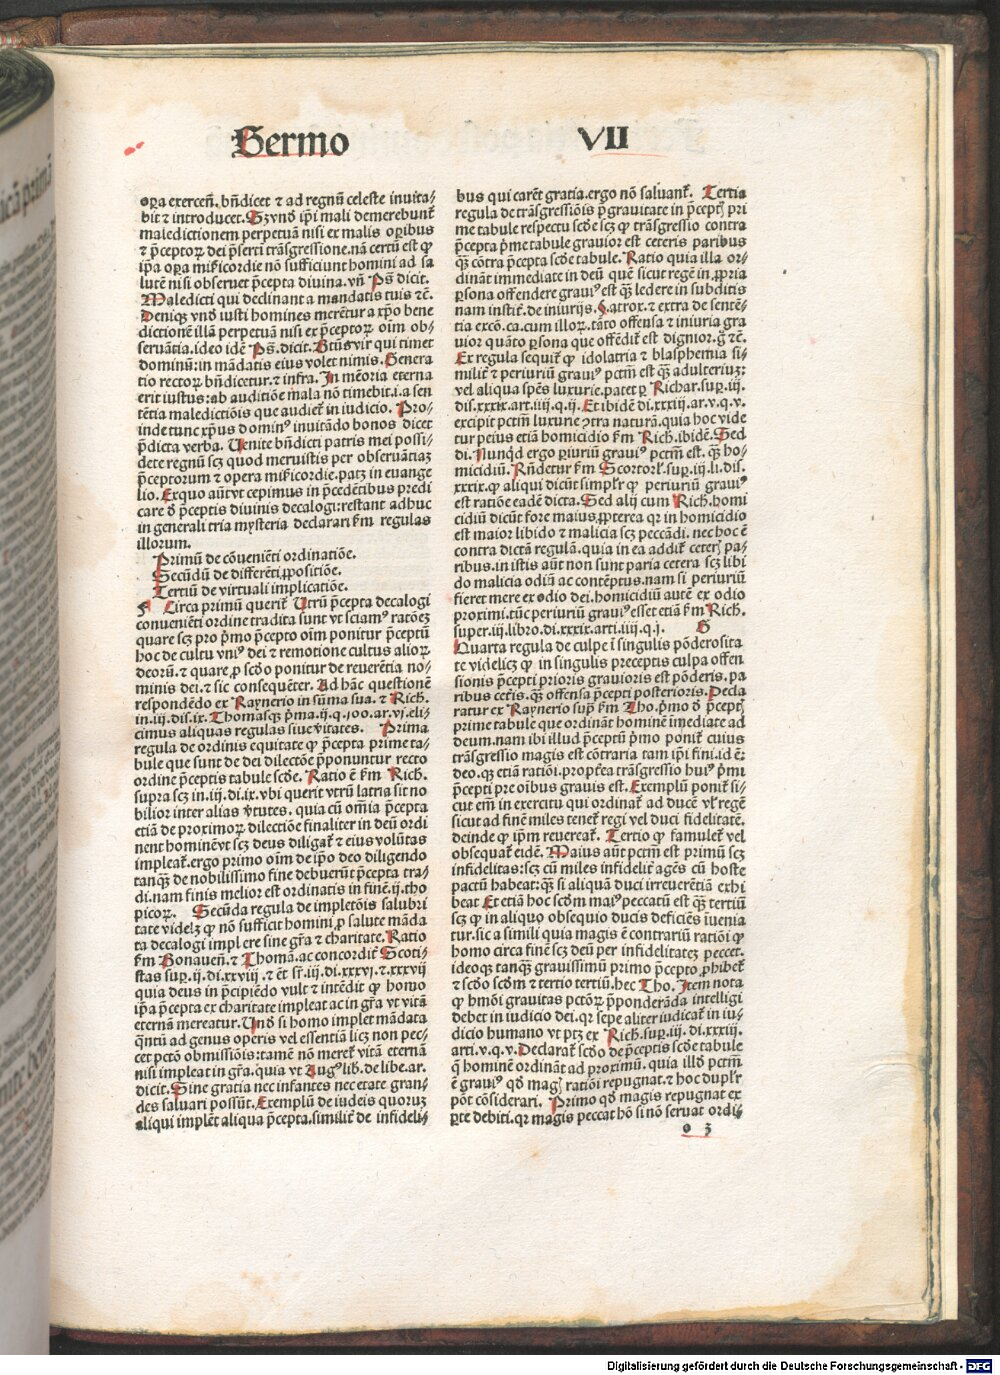 Sermo VII
oꝑa exercen̄. bn̄dicet ⁊ ad regnū celeste inuita⸗
bit ⁊ introducet. Sꝫ vnō ip̄i mali demerebunt᷑
maledictionem perpetuā nisi ex malis oꝑibus
⁊ p̄ceptoꝝ dei p̄serti trāsgressione. nā certū est ꝙ
ip̄a oꝑa mīẜicordie nō sufficiunt homini ad sa
lutē nisi obseruet p̄cepta diuina. vn̄ Ps̄ dicit.
Maledicti qui declinant a mandatis tuis ⁊c̄.
Deniqꝫ vnō iusti homines merēt᷑ur a xp̄o bene
dictionē illā perpetuā nisi ex p̄ceptoꝝ oīm ob⸗
seruātia. ideo idē Ps̄. dicit. Btūs vir qui timet
dominū: in mādatis eius volet nimis. Genera
tio rectoꝝ bn̄dicetur. ⁊ infra. In mēoria eterna
erit iustus: ab auditiōe mala nō timebit. i. a sen
tētia maledictiōis que audiet᷑ in iudicio. Pro⸗
inde tunc xp̄us dominꝰ inuitādo bonos dicet
p̄dicta verba. Uenite bn̄dicti patris mei possi⸗
dete regnū scꝫ quod meruistis per obseruātiaꝫ
p̄ceptorum ⁊ opera mīẜicordie. patꝫ in euange
lio. Exquo aūt vt cepimus in p̄cedētibus predi
care ō p̄ceptis diuinis decalogi: restant adhuc
in generali tria mysteria declarari ẜm regulas
illorum.
Primū de cōueniēti ordinatiōe.
Secūdū de differēti ꝓpositiōe.
Tertiū de virtuali implicatiōe.
F Circa primū querit᷑ Utrū p̄cepta decalogi
conueniēti ordine tradita sunt vt sciamꝰ ratōeꝫ
quare scꝫ pro p̄mo p̄cepto oīm ponitur p̄ceptū
hoc de cultu vniꝰ dei ⁊ remotione cultus alioꝝ
deorū. ⁊ quare ꝓ scd̄o ponitur de reuerētia no⸗
minis dei. ⁊ sic consequēter. Ad hāc questionē
respondēdo ex Raynerio in sūma sua. ⁊ Rich̄.
in. iij. dis. ix. Thomasqꝫ p̄ma. ij. q. 100. ar. vj. eli⸗
cimus aliquas regulas siue v̄itates. Prima
regula de ordinis equitate ꝙ p̄cepta prime ta⸗
bule que sunt de dei dilectōe p̄ponuntur recto
ordine p̄ceptis tabule scd̄e. Ratio ē ẜm Rich̄.
supra scꝫ in. iij. di. ix. vbi querit vtrū latria sit no
bilior inter alias v̄tutes. quia cū om̄ia p̄cepta
etiā de proximoꝝ dilectiōe finaliter in deū ordi
nent hominē vt scꝫ deus diligat᷑ ⁊ eius volūtas
impleat᷑. ergo primo oīm de ip̄o deo diligendo
tanqꝫ̄ de nobilissimo fine debuerūt p̄cepta tra⸗
di. nam finis melior est ordinatis in finē. ij. tho
picoꝝ. Secūda regula de impletōis salubri
tate videlꝫ ꝙ nō sufficit homini ꝓ salute māda
ta decalogi implere sine gr̄a ⁊ charitate. Ratio
ẜm Bonauen̄. ⁊ Thomā. ac concordit᷑ Scoti⸗
stas suꝑ. ij. di. xxviij. ⁊ ēt sr̄. iij. di. xxxvj. ⁊. xxxvij
quia deus in p̄cipiēdo vult ⁊ intēdit ꝙ homo
ip̄a p̄cepta ex charitate impleat ac in gr̄a vt vitā
eternā mereatur. Unō si homo implet mādata
q̄ntū ad genus operis vel essentiā licꝫ non pec⸗
cet pctō obmissiōis: tamē nō meret᷑ vitā eternā
nisi impleat in gr̄a. quia vt Augꝰ lib̄. de libe. ar.
dicit. Sine gratia nec infantes nec etate gran⸗
des saluari possūt. Exemplū de iudeis quoruꝫ
aliqui implēt aliqua p̄cepta. similit᷑ de infideli⸗
bus qui carēt gratia. ergo nō saluant᷑. Tertia
regula de trāsgressiōis p̄grauitate in p̄ceptꝭ pri
me tabule respectu scd̄e scꝫ ꝙ trāsgressio contra
p̄cepta p̄me tabule grauior est ceteris paribus
qꝫ̄ cōtra p̄cepta scd̄e tabule. Ratio quia illa or⸗
dināt immediate in deū quē sicut regē in ꝓpria
ꝑsona offendere grauiꝰ est qꝫ̄ ledere in subditis
nam instit᷑. de iniurijs. §. atrox. ⁊ extra de sentē⸗
tia excō. ca. cum illoꝝ. tāto offensa ⁊ iniuria gra
uior quāto ꝑsona que offēdit᷑ est dignior. gͦ ⁊c̄.
Ex regula sequit᷑ ꝙ idolatria ⁊ blasphemia si⸗
milit᷑ ⁊ periuriū grauiꝰ pctm̄ est qꝫ̄ adulteriuꝫ:
vel aliqua sp̄es luxurie. patet ꝑ Richar. suꝑ. iij.
dis. xxxix. art. iiij. q. ij. Et ibidē di. xxxiij. ar. v. q. v.
excipit pctm̄ luxurie ꝯtra naturā. quia hoc vide
tur peius etiā homicidio ẜm Rich̄. ibidē. Sed
di. Nunqd̄ ergo ꝑiuriū grauiꝰ pctm̄ est. qꝫ̄ ho⸗
micidiū. Rn̄detur ẜm Scotorl̄. suꝑ. iij. li. dis.
xxxix. ꝙ aliqui dicūt simpl̄r ꝙ periuriū grauiꝰ
est ratiōe eadē dicta. Sed alij cum Rich̄. homi
cidiū dicūt fore maius, ꝓpterea qꝛ in homicidio
est maior libido ⁊ malicia scꝫ peccādi. nec hoc ē
contra dictā regulā. quia in ea addit᷑ ceterꝭ pa⸗
ribus. in istis aūt non sunt paria cetera scꝫ libi
do malicia odiū ac contēptus. nam si periuriū
fieret mere ex odio dei. homicidiū autē ex odio
proximi. tūc periuriū grauiꝰ esset etiā ẜm Rich̄.
super. iij. libro. di. xxxix. arti. iij. q. j. G
Quarta regula de culpe ī singulis pōderosita
te videlicꝫ ꝙ in singulis preceptis culpa offen
sionis p̄cepti prioris grauioris est pōderis. pa
ribus ceterꝭ. qꝫ̄ offensa p̄cepti posterioris. Decla
ratur ex Raynerio supͣ ẜm Tho. p̄mo ō p̄ceptꝭ
prime tabule que ordināt hominē īmediate ad
deum. nam ibi illud p̄ceptū p̄mo ponit᷑ cuius
trāsgressio magis est cōtraria tam ip̄i fini. id ē:
deo. qꝫ etiā ratiōi. propt̄ea trāsgressio huiꝰ p̄mi
p̄cepti pre oībus grauis est. Exemplū ponit᷑ si⸗
cut em̄ in exercitu qui ordinat᷑ ad ducē vl̓ regē
sicut ad finē miles tenet᷑ regi vel duci fidelitatē.
deinde ꝙ ip̄m reuereat᷑. Tertio ꝙ famulet᷑ vel
obsequat᷑ eidē. Maius aūt pctm̄ est primū scꝫ
infidelitas: scꝫ cū miles infidelit᷑ agēs cū hoste
pactū habeat: qꝫ̄ si aliquā duci irreuerētiā exhi
beat Et etiā hoc scd̄m maiꝰ peccatū est qꝫ̄ tertiū
scꝫ ꝙ in aliquo obsequio ducis deficiēs īuenia
tur. sic a simili quia magis ē contrariū ratiōi ꝙ
homo circa finē scꝫ deū per infidelitateꝫ peccet.
ideoqꝫ tanqꝫ̄ grauissimū primo p̄cepto ꝓhibet᷑
⁊ scd̄o scd̄m ⁊ tertio tertiū. hec Tho. Item nota
ꝙ hmōi grauitas pctōꝝ p̄ponderāda intelligi
debet in iudicio dei. qꝛ sepe aliter iudicat᷑ in iu⸗
dicio humano vt ptꝫ ex Rich̄. suꝑ. iij. di. xxxiij.
arti. v. q. v. Declarat᷑ scd̄o de p̄ceptis scd̄e tabule
q̄ hominē ordināt ad proximū. quia illd̓ pctm̄
ē grauiꝰ qd̓ magꝭ ratiōi repugnat. ⁊ hoc dupl̄r
pōt cōsiderari. Primo qd̓ magis repugnat ex
ꝑte debiti. qꝛ magis peccat hō si nō seruat ordi⸗
o 3
Digitalisierung gefördert durch die Deutsche Forschungsgemeinschaft - DFG